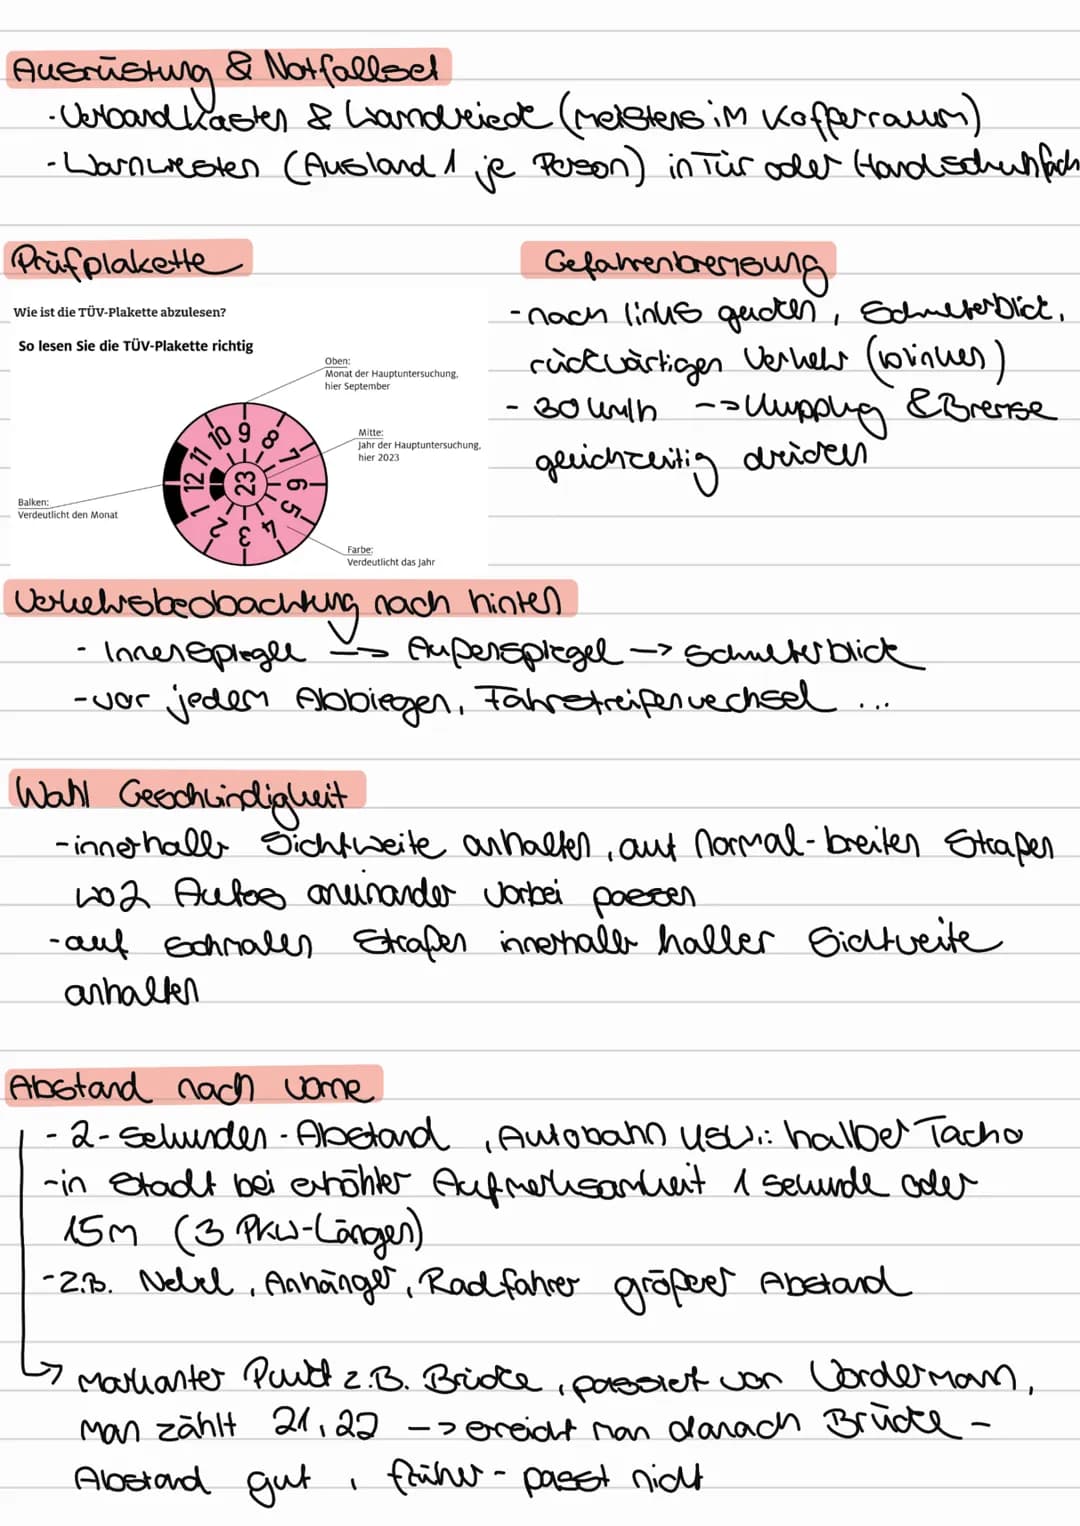 Ausrüstung & Notfallset
- Verbandkasten & Warndreieck (meistens im Kofferraum)
- Warnwesten (Ausland 1 je Person) in Tür oder Handschuhfach
Prüfplakette
Wie ist die TÜV-Plakette abzulesen?
So lesen Sie die TÜV-Plakette richtig
Oben:
Monat der Hauptuntersuchung,
hier September
Mitte:
Jahr der Hauptuntersuchung,
hier 2023
Balken:
Verdeutlicht den Monat
Farbe:
Verdeutlicht das Jahr
1 2 3 4 5 6 7 8 9 10 11 12
23
Gefahrenbremsung
- nach links gucken, Schulterblick,
rückwärtigen Verkehr (winken)
- 30 km/h --> Kupplug & Bremse
gleichzeitig drücken
Verkehrsbeobachtung nach hinten
- Innenspiegel --> Außenspiegel --> Schulterblick
- vor jedem Abbiegen, Fahrstreifenwechsel ...
Wahl Geschwindigkeit
- innerhalb Sichtweite anhalten, auf normal-breiten Straßen
wo 2 Autos aneinander vorbei passen
- auf schmalen Straßen innerhalb halber Sichtweite
anhalten
Abstand nach vorne
- 2-Sekunden-Abstand, Autobahn usw.: halber Tacho
- in Stadt bei erhöhter Aufmerksamkeit 1 Sekunde oder
15m (3 PKW-Längen)
- z.B. Nebel, Anhänger, Radfahrer größerer Abstand
-> markanter Punkt z.B. Brücke, passiert von Vordermann,
man zählt 21, 22 --> erreicht man danach Brücke -
Abstand gut, früher - passt nicht